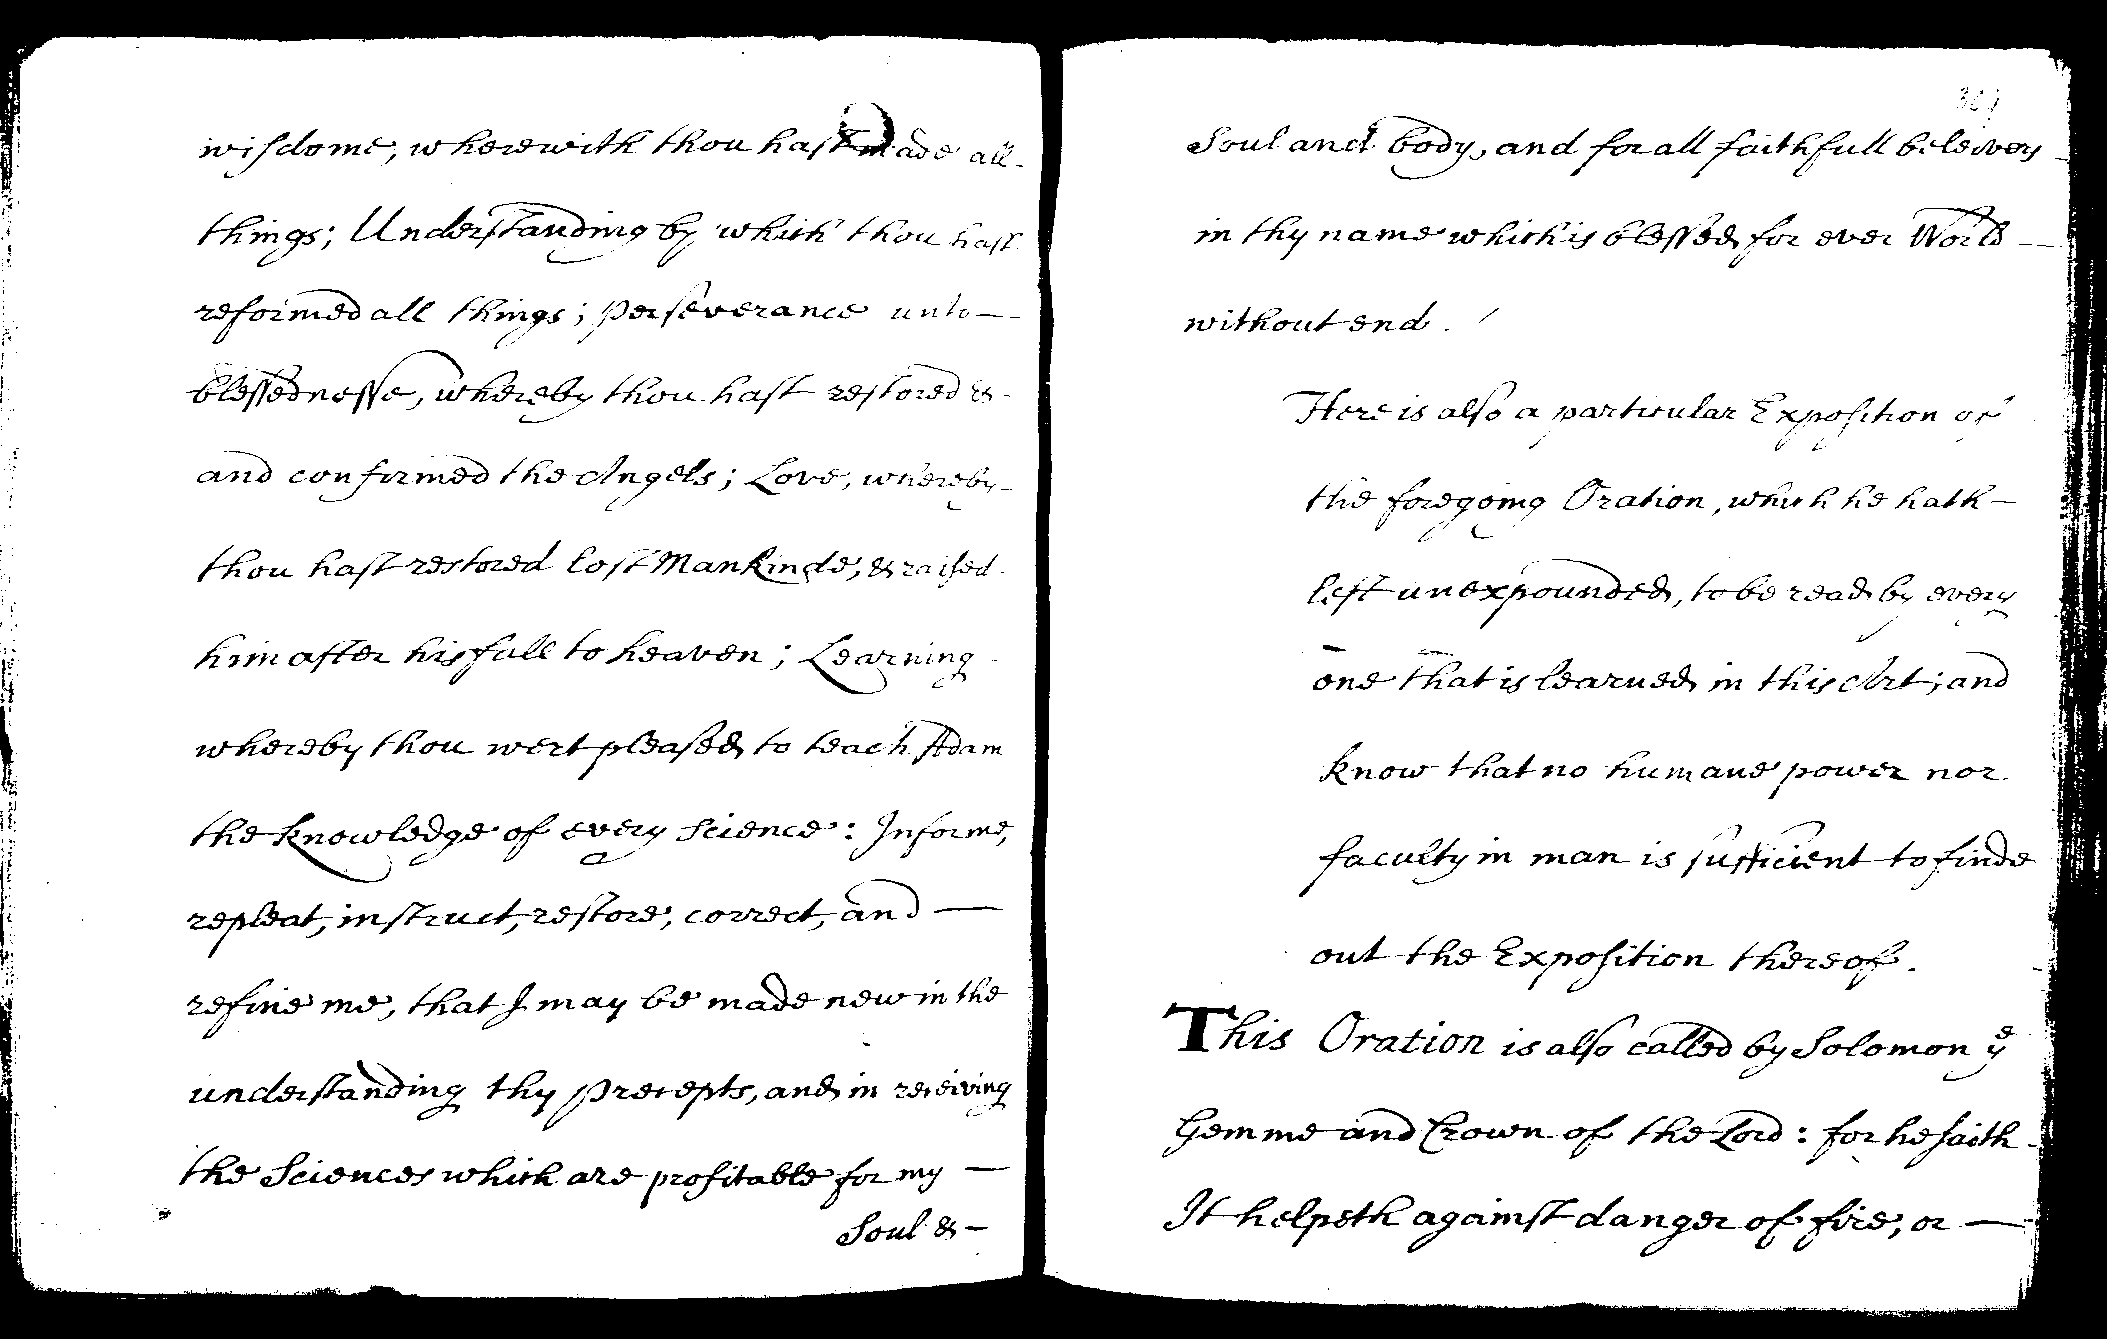 wisdome, wherewith thou hast made all-
things; Understanding by which thou hast
reformed all things; perseverance unto —
blessednesse, whereby thou hast restored &
and confirmed the Angels; Love, whereby-
thou hast restored lost Mankinde, & raised
him after his fall to heaven; Learning
whereby thou wert pleased to teach Adam
the knowledge of every Science: Informe,
repleat, instruct, restore, correct, and —
refine me, that I may be made new in the
understanding thy precepts, and in receiving
the Sciences which are profitable for my —
Soul & —
Soul and body, and for all faithfull beleivers
in thy name which is blessed for ever World —
without end.
Here is also a particular Exposition of
the foregoing Oration, which he hath —
left unexpounded, to be read by every
one that is learned in this Art; and
know that no humane power nor
faculty in man is sufficient to finde
out the Exposition thereof.
This Oration is also called by Solomon yͤ
Gemme and Crown of the Lord: for he saith
It helpeth against danger of fire, or —